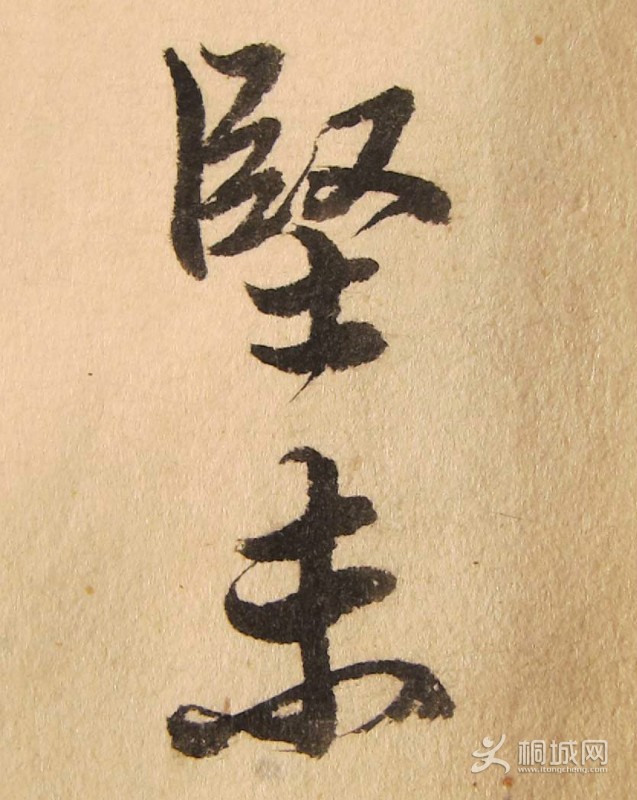 堅未
桐城网
www.itongcheng.com